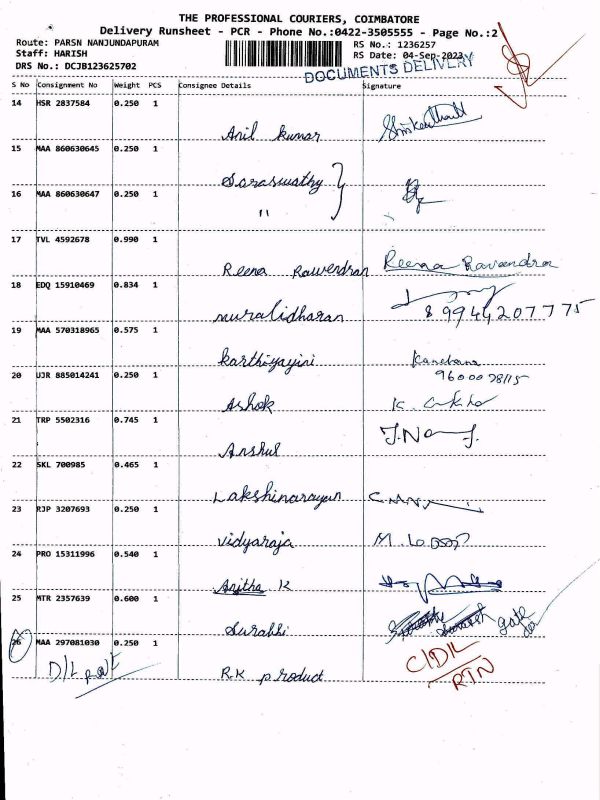 THE PROFESSIONAL COURIERS, COIMBATORE
Delivery Runsheet - PCR - Phone No.:0422-3505555 - Page No.:2
Route: PARSN NANJUNDAPURAM
RS No.: 1236257
Staff: HARISH
RS Date: 04-Sep-2023
DRS No.: DCJB123625702
DOCUMENTS DELIVERY
S No Consignment No Weight PCS Consignee Details Signature
14 HSR 2837584 0.250 1
Anil kumar
15 MAA 860630645 0.250 1
Saraswathy
16 MAA 860630647 0.250 1
"
17 TVL 4592678 0.990 1
Reena Raveendran Reena Raveendran
18 EDQ 15910469 0.834 1
muralidharan 8 9944207775
19 MAA 570318965 0.575 1
karthiyayini Kanchana
20 UJR 885014241 0.250 1
Ashok K.
21 TRP 5502316 0.745 1
Anshul
22 SKL 700985 0.465 1
Lakshinarayan
23 RJP 3207693 0.250 1
vidyaraja M.
24 PRO 15311996 0.540 1
Anitha K
25 MTR 2357639 0.600 1
Surabhi
26 MAA 297081030 0.250 1
D/L
R.K product
C/D/L
RTN